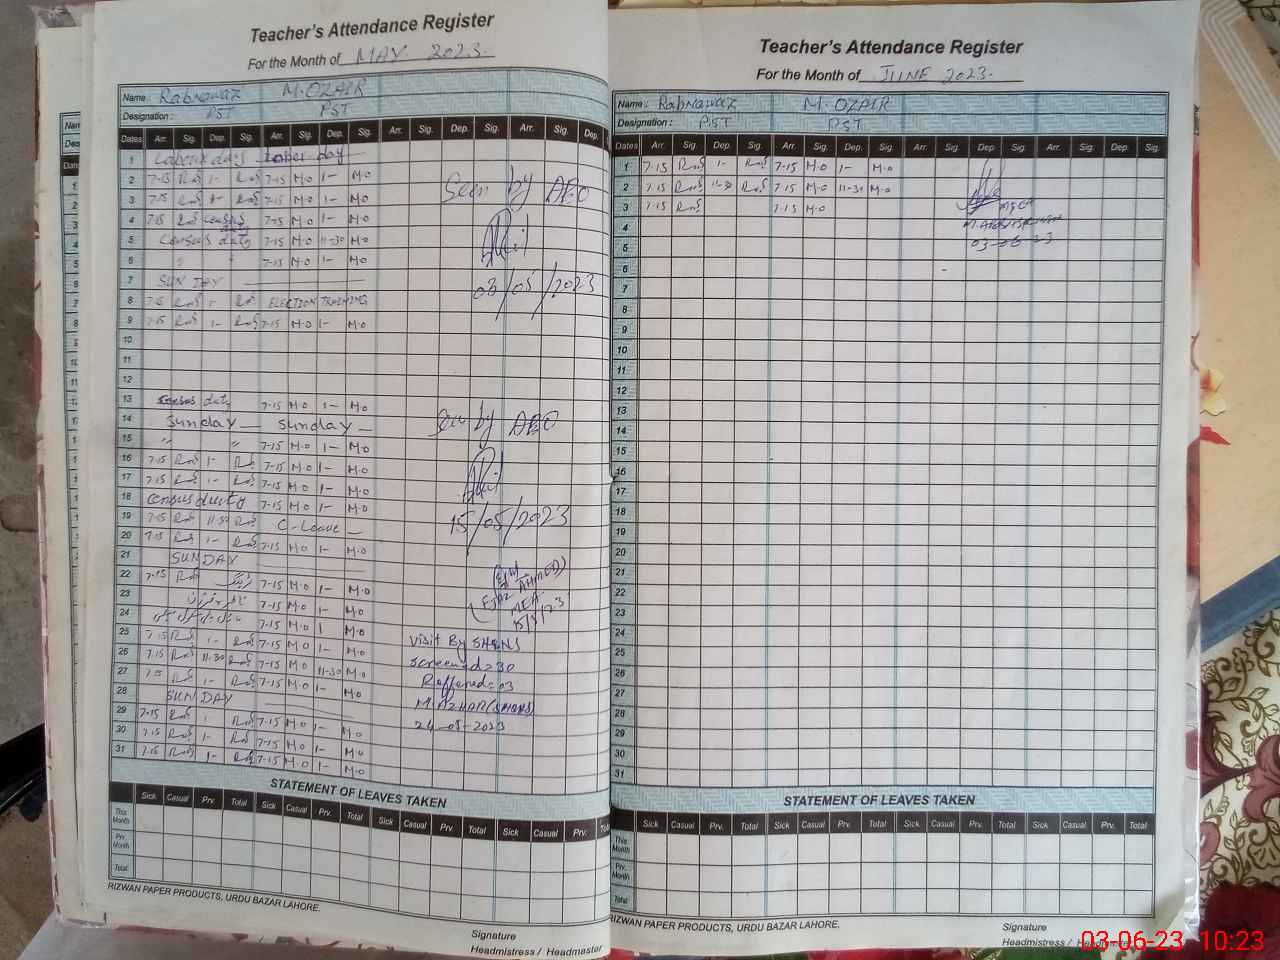 Teacher's Attendance Register
For the Month of MAY 2023.
Name: Rabnawaz M.OZAIR
Designation: PST PST
Dates Arr. Sig. Dep. Sig. Arr. Sig. Dep. Sig. Arr. Sig. Dep. Sig. Arr. Sig. Dep.
1 Laber day Laber day
2 7-15 1- 7-15 M.O 1- M.O
3 7-15 1- 7-15 M.O 1- M.O
Seen by AEO
4 7-15 Census duty 7-15 M.O 1- M.O
5 Census duty 7-15 M.O 11-30 M.O
6 " " 7-15 M.O 1- M.O
7 SUNDAY
03/05/2023
8 7-15 1- ELECTION TRAINING
9 7-15 1- 7-15 M.O 1- M.O
10
11
12
13 Census duty 7-15 M.O 1- M.O
14 Sunday Sunday
Seen by AEO
15 " " 7-15 M.O 1- M.O
16 7-15 1- 7-15 M.O 1- M.O
17 7-15 1- 7-15 M.O 1- M.O
18 Census duety 7-15 M.O 1- M.O
19 7-15 11-30 C-Leave
15/05/2023
20 7-15 1- 7-15 M.O 1- M.O
21 SUNDAY
22 7-15 7-15 M.O 1- M.O
(EJAZ AHMED)
MEA
23 7-15 M.O 1- M.O
24 7-15 M.O 1 M.O
25 7-15 1- 7-15 M.O 1- M.O
Visit By SH&NS
26 7-15 11-30 7-15 M.O 11-30 M.O
Screened=30
27 7-15 1- 7-15 M.O 1- M.O
Reffered=03
28 SUNDAY
M.AZHAR(SH&NS)
29 7-15 1- 7-15 M.O 1- M.O
24-05-2023
30 7-15 1- 7-15 M.O 1- M.O
31 7-15 1- 7-15 M.O 1- M.O
STATEMENT OF LEAVES TAKEN
Sick Casual Prv. Total Sick Casual Prv. Total Sick Casual Prv. Total Sick Casual Prv.
This Month
Prv. Month
Total
RIZWAN PAPER PRODUCTS, URDU BAZAR LAHORE.
Signature
Headmistress / Headmaster
Teacher's Attendance Register
For the Month of JUNE 2023.
Name: Rabnawaz M.OZAIR
Designation: PST PST
Dates Arr. Sig. Dep. Sig. Arr. Sig. Dep. Sig. Arr. Sig. Dep. Sig. Arr. Sig. Dep. Sig.
1 7-15 1- 7-15 M.O 1- M.O
2 7-15 11-30 7-15 M.O 11-30 M.O
3 7-15 7-15 M.O
4
5
6
7
8
9
10
11
12
13
14
15
16
17
18
19
20
21
22
23
24
25
26
27
28
29
30
31
STATEMENT OF LEAVES TAKEN
Sick Casual Prv. Total Sick Casual Prv. Total Sick Casual Prv. Total Sick Casual Prv. Total
This Month
Prv. Month
Total
RIZWAN PAPER PRODUCTS, URDU BAZAR LAHORE.
Signature
Headmistress /
03-06-23 10:23